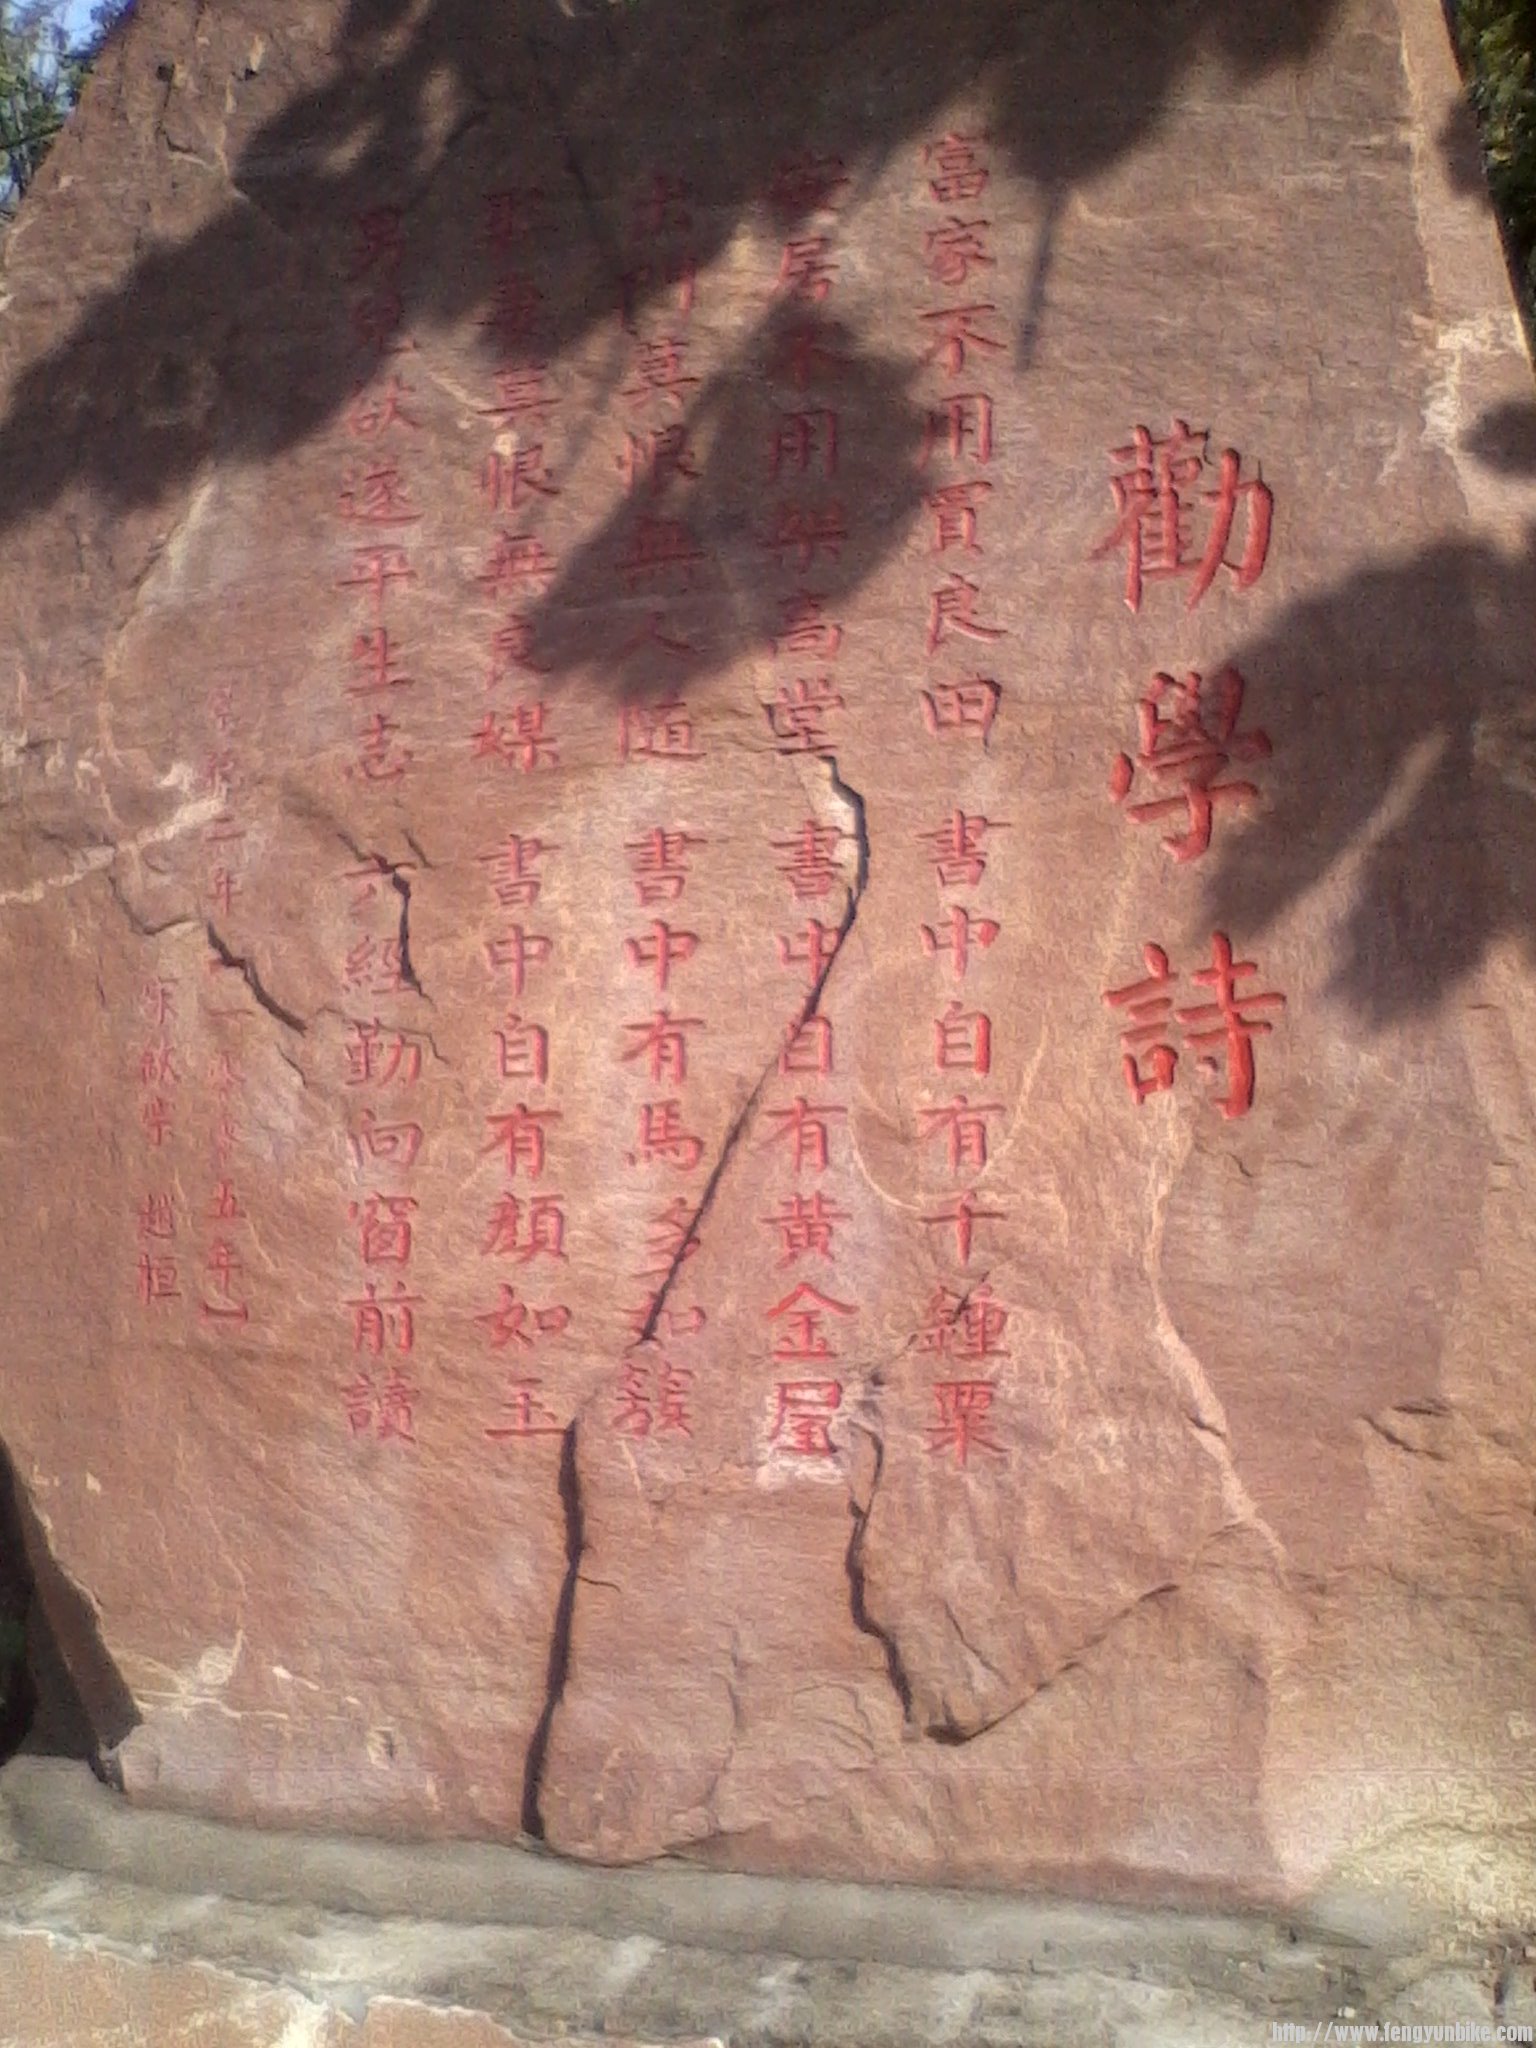 勸學詩
富家不用買良田 書中自有千鍾粟
安居不用架高堂 書中自有黄金屋
門莫恨無人隨 書中有馬多如簇
娶妻莫恨無良媒 書中自有顔如玉
男兒欲遂平生志 六經勤向窗前讀
二年 五年】
宋 宗 趙恒
http://www.fengyunbike.com